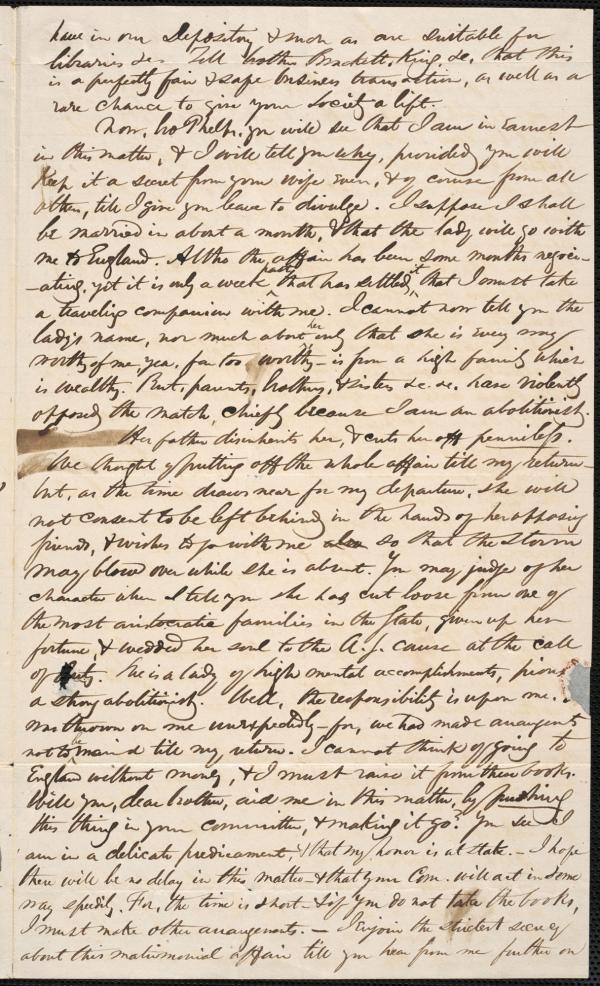 have in our Depository & such as are suitable for
libraries &c. Tell brothers Brackett, King, &c. that this
is a perfectly fair & safe business transaction, as well as a
rare chance to give your Society a lift.
Now, bro Phelps, you will see that I am in earnest
in this matter, & I will tell you why, provided you will
keep it a secret from your wife even, & of course from all
others, till I give you leave to divulge. I suppose I shall
be married in about a month, & that the lady will go with
me to England. Altho the affair has been some months negoci-
-ating, yet it is only a week past that has settled it, that I must take
a traveling companion with me. I cannot now tell you the
lady's name, nor much about her only that she is every way
worthy of me, yea, far too worthy - is from a high family which
is wealthy. But, parents, brothers, & sisters &c. &c. have violently
opposed the match, chiefly because I am an abolitionist.
Her father disinherits her, & cuts her off penniless.
We thought of putting off the whole affair till my return -
but, as the time draws near for my departure, she will
not consent to be left behind in the hands of her opposing
friends, & wishes to go with me also so that the storm
may blow over while she is absent. You may judge of her
character when I tell you she has cut loose from one of
the most aristocratic families in the State, given up her
fortune, & wedded her soul to the A. S. cause at the call
of duty. She is a lady of high mental accomplishments, pious
a strong abolitionist. Well, the responsibility is upon me.
was thrown on me unexpectedly - for, we had made arrangents
not to be married till my return. I cannot think of going to
England without money, & I must raise it from these books.
Will you, dear brother, aid me in this matter, by pushing
this thing in your committee, & making it go? You see I
am in a delicate predicament, & that my honor is at stake. - I hope
there will be no delay in this matter & that your Com. will act in some
way speedily. For, the time is short & if you do not take the books,
I must make other arrangements. - I enjoin the strictest secrecy
about this matrimonial affair till you hear from me further on